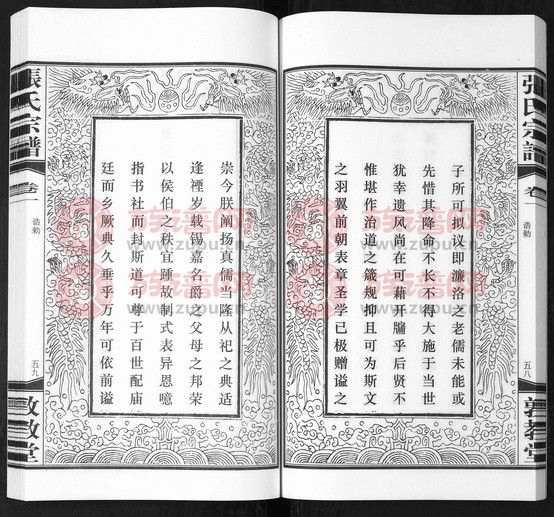 張氏宗譜
卷一
诰勅
五八
敦教堂
子所可拟议即濂洛之老儒未能或
先惜其降命不长不得大施于当世
犹幸遗风尚在可藉开牖乎后贤不
惟堪作治道之箴规抑且可为斯文
之羽翼前朝表章圣学已极赠谥之
崇今朕阐扬真儒当隆从祀之典适
逢禋岁载锡嘉名爵之父母之邦荣
以侯伯之秩宜踵故制式表异恩噫
指书社而封斯道可尊于百世配庙
廷而乡厥典久垂乎万年可依前谥
張氏宗譜
卷一
诰勅
五九
敦教堂
族谱网
www.zupu.cn
族谱网
www.zupu.cn
族谱网
www.zupu.cn
族谱网
www.zupu.cn